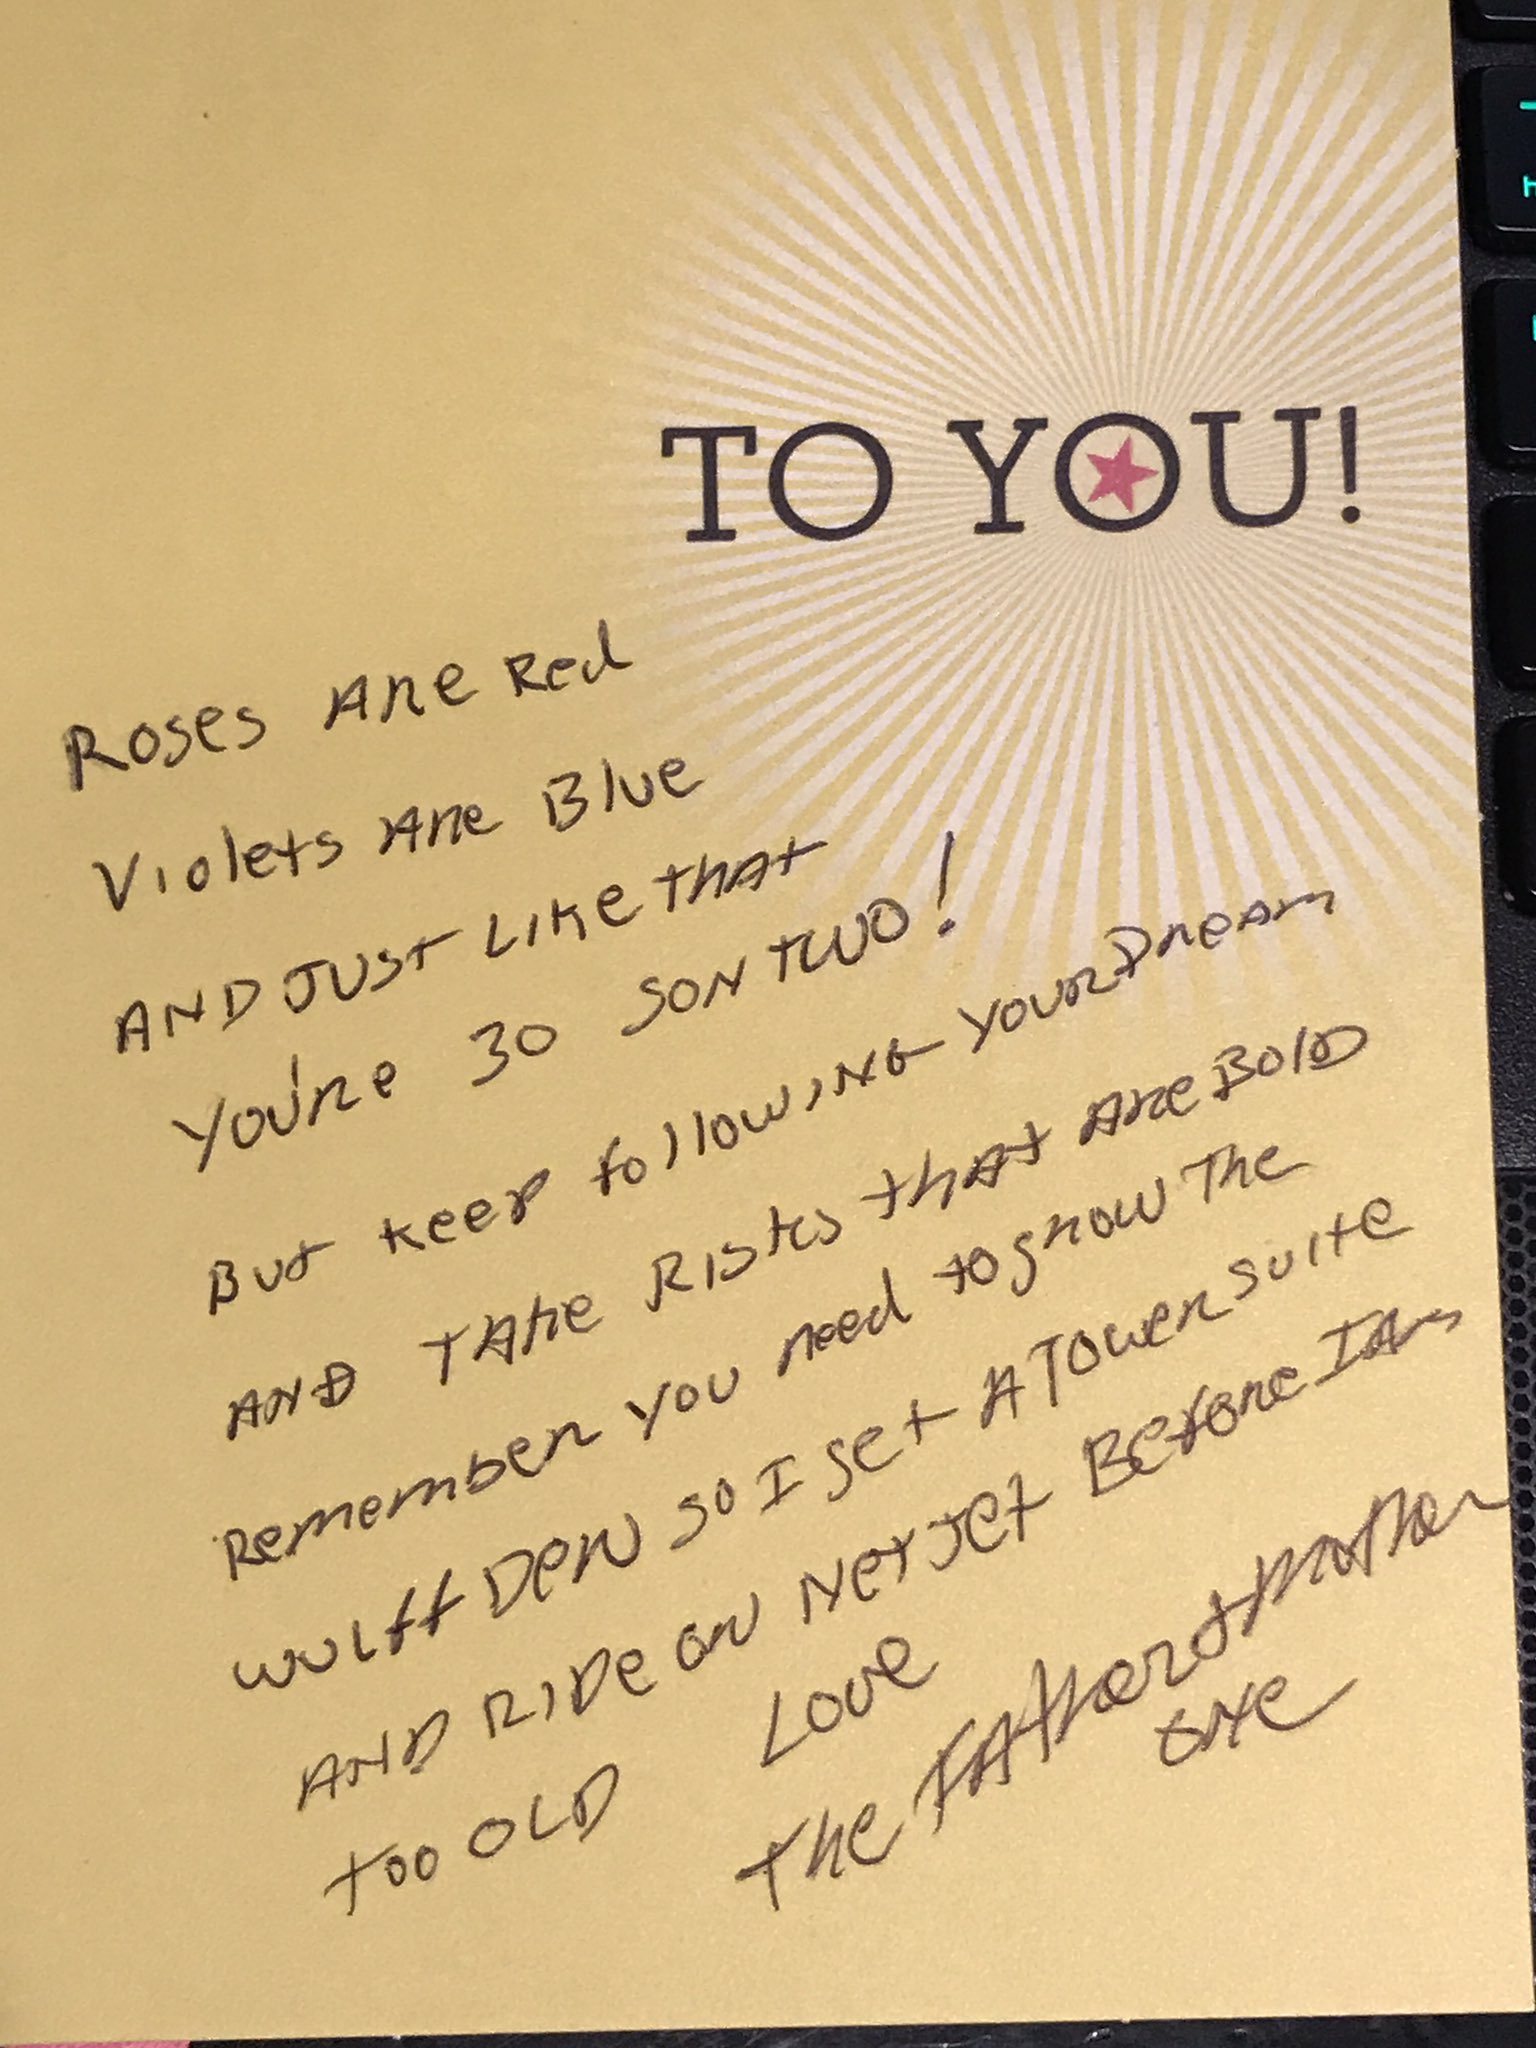 TO YOU!
Roses Are Red
Violets Are Blue
AND JUST LIKE THAT
You're 30 SON TWO!
But Keep following your Dream
AND TAKE RISKS that Are BOLD
Remember you need to grow The
Wulff Den so I get A Tower suite
AND RIDE ON Net Jet Before I Am
too OLD
Love
The Father & Mother
one